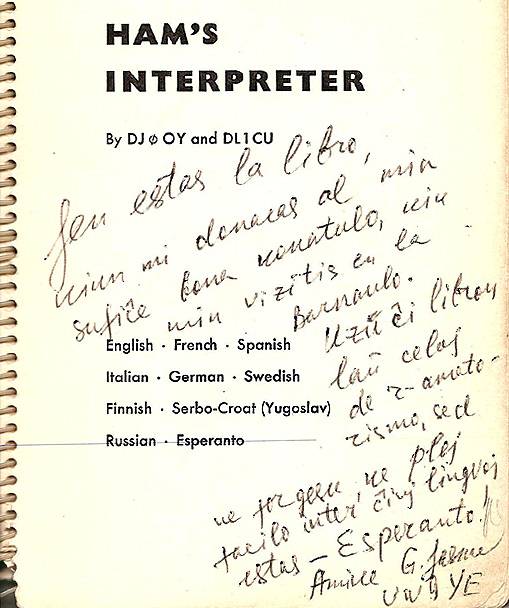 HAM'S
INTERPRETER
By DJ ø OY and DL1CU
Jen estas la libro,
kiun mi donacas al min
sufiĉe bona konatulo, kiu
min vizitis en la
Barnaulo.
English · French · Spanish
Italian · German · Swedish
Finnish · Serbo-Croat (Yugoslav)
Russian · Esperanto
Uzu ĉi libron
laŭ celoj
de r-amato-
rismo, sed
ne forgesu, ke plej
facila inter ĉiuj lingvoj
estas – Esperanto!
Amike G.
UW9YE